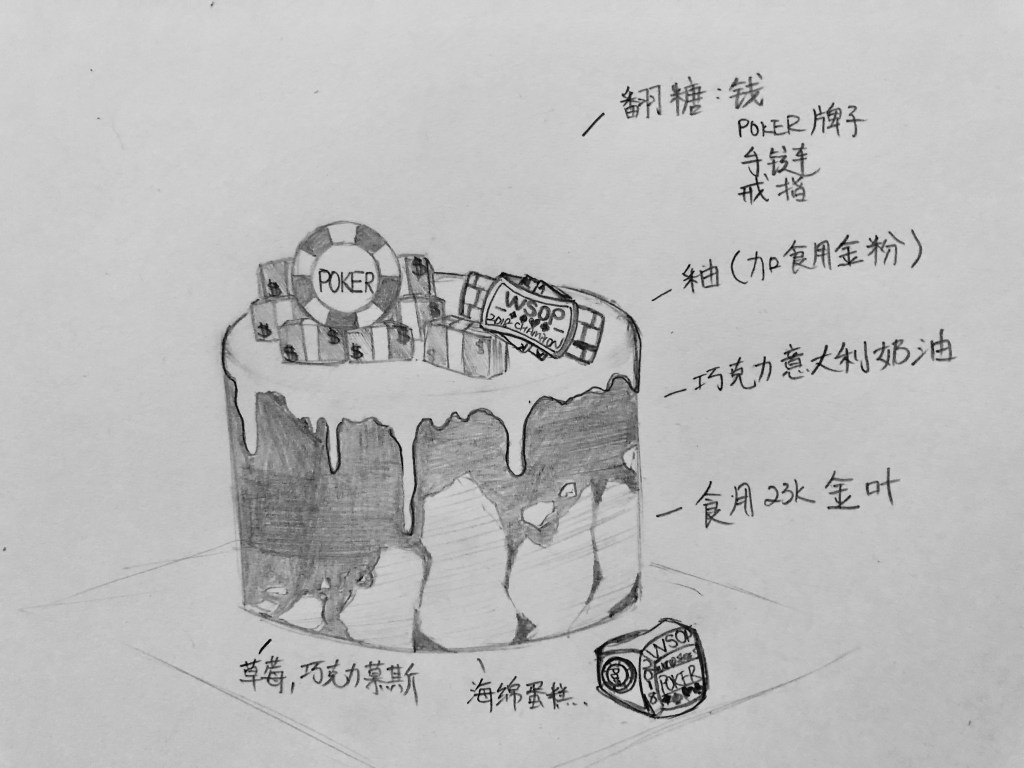 翻糖：钱
POKER 牌子
手链
戒指
釉（加食用金粉）
巧克力意大利奶油
食用 23K 金叶
草莓，巧克力慕斯
海绵蛋糕.
POKER
$
$
$
$
$
$
WSOP
WSOP
POKER
$